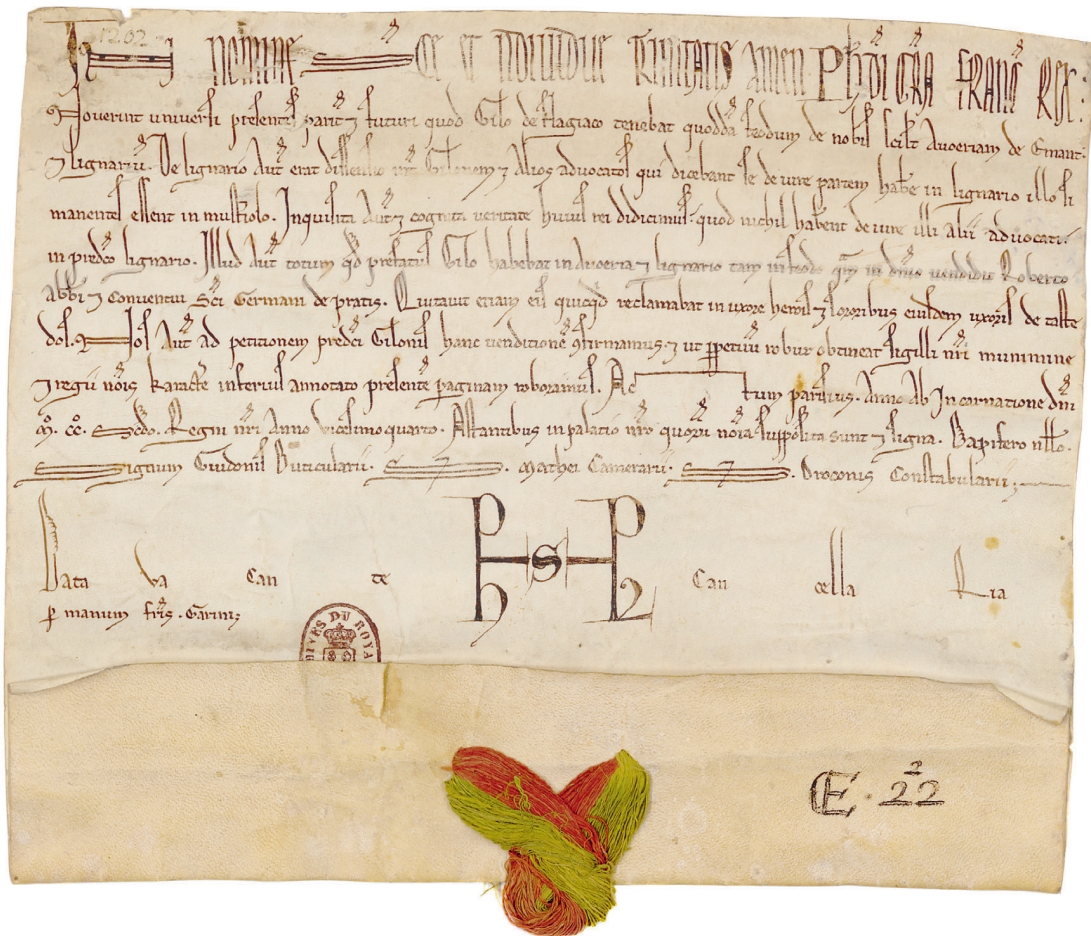 1202
In nomine sce et individue trinitatis amen. Ph di gra franc rex.
Noverint universi presentes parit 7 futuri quod Gilo de Flagiaco tenebat quodda feodum de nobis scilt Avoeriam de Emant.
7 lignariu. De lignario aut erat dissensio int Gilonem 7 alios advocatos qui dicebant se de iure partem habe in lignario illo si
manentes essent in musteolo. Inquisita aut 7 cognita veritate huius rei didicimus quod nichil habent de iure illi alii advocati
in predco lignario. Illud aut totum qd prefatus Gilo habebat in avoeria 7 lignario tam in feodo qm in dnio vendidit Roberto
abbi 7 conventui Sci Germani de pratis. Quitavit etiam eis quicqd reclamabat in uxore hervis 7 sororibus eiusdem uxoris de caste
dol. Nos aut ad petitionem predci Gilonis hanc venditione 9firmamus. 7 ut ppetuu robur obtineat sigilli nri munimine
7 regii nois karactere inferius annotato presente paginam roboramus. Actum parisius. Anno ab Incarnatione dni
Mo. CCo. Scdo. Regni nri Anno vicesimo quarto. Astantibus in palatio nro quoru noia supposita sunt 7 signa. Dapifero nllo.
Signum Guidonis Buticularii. S. Mathei Camerarii. S. Droconis Constabularii.
Data va can te Ph s Ph Can cella Ria
p manum fris. Garini
ARCHIVES DU ROYA
E. 22
2